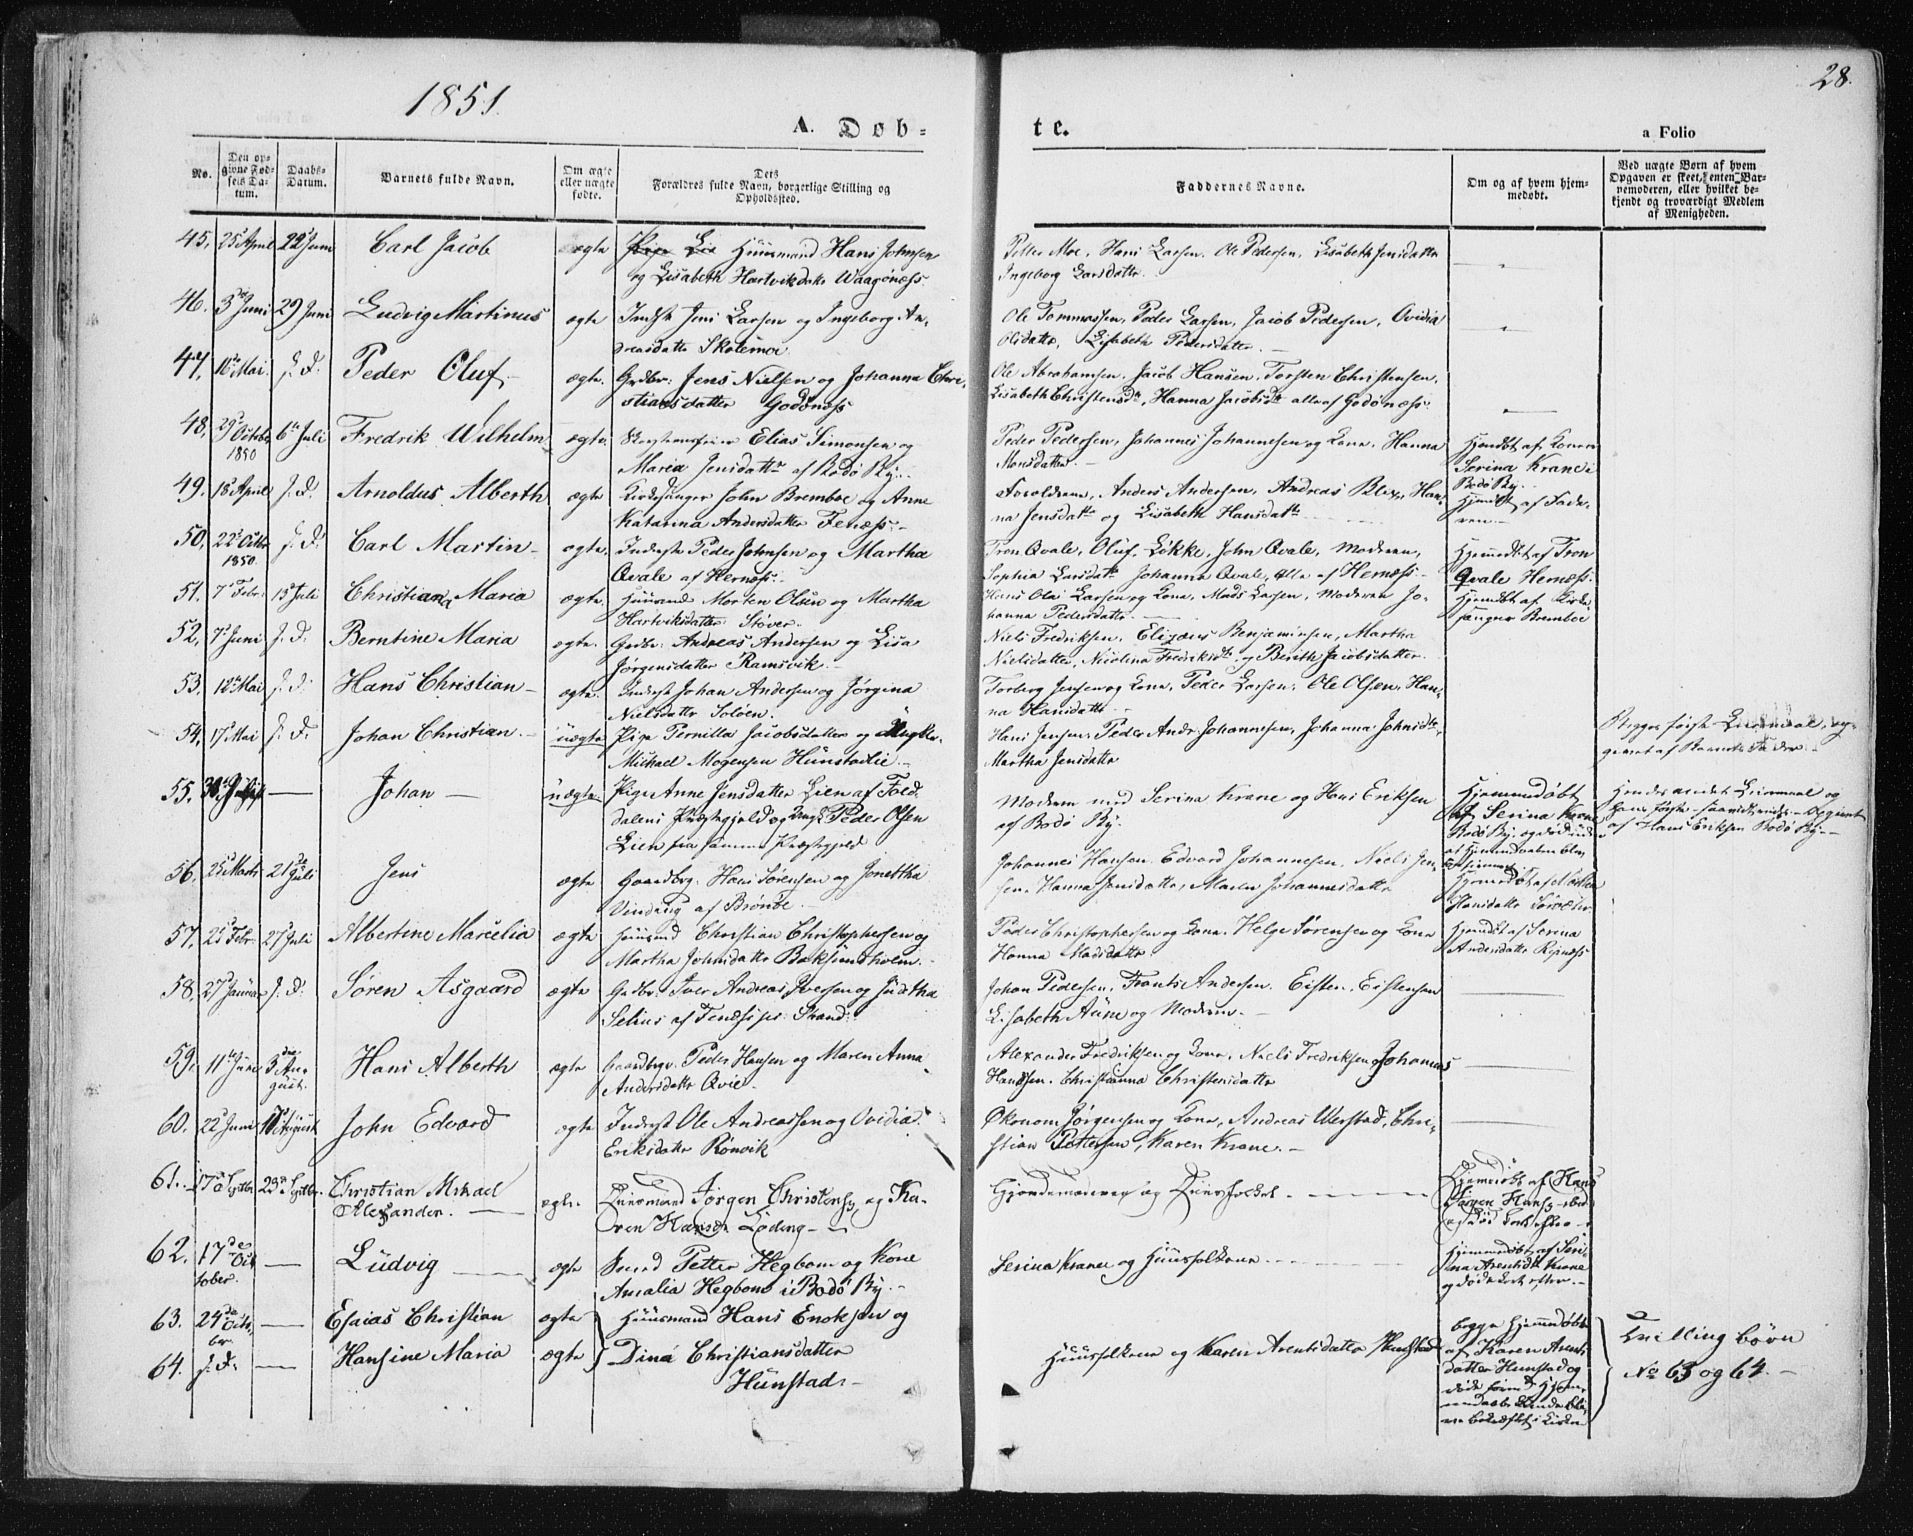 1851.
28.
A. Dob-
te.
a Folio
No.
Den op-
givne Fød-
sels Da-
tum.
Daabs-
Datum.
Barnets fulde Navn.
Om ægte
eller uægte
fødte.
Dets
Forældres fulde Navn, borgerlige Stilling og
Opholdssted.
Faddernes Navne.
Om og af hvem hjem-
medøbt.
Ved uægte Børn af hvem
Opgaven er skeet, enten Bar-
nemoderen, eller hvilket be-
kjendt og troværdigt Medlem
af Menigheden.
45. 25 April 22 Juni Carl Jacob ægte Huusmand Hans Johnsen
og Lisabeth Hartviksdatr Waagønæss.
Petter Moe, Hans Larsen, Ole Pedersen, Lisabeth Jensdatter
Ingeborg Larsdatter
46. 3 Juni 29 Juni Ludvig Martinus ægte Inderst Jens Larsen og Ingeborg An-
dreasdatter Skolemoe
Ole Tommassen, Peder Larsen, Jacob Pedersen, Ovidia
Olsdatter, Lisabeth Pedersdatter.
47. 16 Mai s. D. Peder Oluf ægte. Grdbr: Jens Nielsen og Johanna Chri-
stiansdatter Godønæss
Ole Abrahamsen, Jacob Hansen, Torsten Christensen,
Lisabeth Christensdr, Hanna Jacobsdr alle af Godønæss.
48. 29 October 1850 6te Juli Fredrik Wilhelm ægte Elias Simonsen og
Maria Jensdatter af Bodø By.
Peder Pedersen, Johannes Johannesen og Kone, Hanna
Monsdatter
Hjemdøbt af Konen
Serina Krane i
Bodø By.
49. 18 April s. D. Arnoldus Alberth ægte Kirkesanger John Bremboe og Anne
Katarina Andersdatter Fenæss.
Forældrene, Anders Andersen, Andreas Blix, Han-
na Jensdatr og Lisabeth Hansdatr
Hjemdt af Fade-
ren
50. 22 Octbr 1850 s. D. Carl Martin ægte. Inderst Peder Johnsen og Martha
Qvale af Hernæss.
Tron Qvale, Oluf Løkke, John Qvale, Moderen,
Sophia Larsdatr Johanna Qvale, Alle af Hernæss.
Hjemmedøbt af Tron
Qvale Hernæss.
51. 7 Febr. 13 Juli Christianna Maria ægte. Huusmd Morten Olsen og Martha
Hartviksdatter Støver.
Hans Ola Larsen og Kone, Mads Larsen, Moderen Jo-
hanna Pedersdatter
Hjemdt af Kirke-
sænger Bremboe
52. 7 Juni s. D. Berntine Maria ægte. Grdbr. Andreas Andersen og Lisa
Jørgensdatter Ramsvik.
Niels Fredriksen, Elizæus Benjaminsen, Martha
Nielsdatter, Nicolina Fredriksdr. og Berith Jacobsdatter.
53. 12 Mai s. D. Hans Christian ægte. Inderst Johan Andersen og Jørgina
Nielsdatter Soløen.
Torberg Jensen og Kone, Peder Larsen, Ole Olsen, Han-
na Hansdatter
54. 17 Mai s. D. Johan Christian uægte Pige Pernilla Jacobsdatter og Ungkl.
Michael Mogensen Hunstadlie
Hans Jensen, Peder Andr. Johannesen, Johanna Johnsdr
Martha Jensdatter
Begges første Leiermaal, op-
givet af Barnets Fader
55. Johan uægte. Pige Anne Jensdatter Lien af Fold-
dalens Præstegjeld og Ungk. Peder Olsen
Lien fra samme Præstegjeld
Moderen med Serina Krane og Hans Eriksen
af Bodø By.
Hjemmedøbt
af Serina Krane
Bodø By, og død
Hendes andet Leiermaal og
hans første
af Hans Eriksen Bodø By.
56. 25 Marts 21 Juli Jens ægte Gaardbrg. Hans Sørensen og Jonettha
af Brønøe.
Johannes Hansen, Edvard Johannesen, Niels Jen-
sen, Hanna Jensdatter, Maren Johannesdatter
Hjemmedøbt af
Hansdatter
57. 25 Febr. 27 Juli Albertine Marcelia ægte Huusmd Christian Christophersen og
Martha Johnsdatter Baksundholm.
Peder Christophersen og Kone, Helge Sørensen og Kone
Hanna Madsdatter
Hjemdt af Serina
Andersdatter Ripnæss
58. 27 Januar s. D. Søren Asgaard ægte Grdbr. Iver Andreas Iversen og Juditha
Selius af Fenæs Strand.
Johan Pedersen, Frants Andersen, Eisten Eistensen
Lisabeth Aune og Moderen.
59. 11te Juni 3die Au-
gust. Hans Alberth ægte Gaardbrgr. Peder Hansen og Maren Anna
Andersdatter Qvie.
Alexander Fredriksen og Kone, Niels Fredriksen og Johannes
Hanssen, Christianna Christensdatter
60. 22 Juni 17 August John Edvard ægte Inderst Ole Andreassen og Ovidia
Eriksdatter Rønvik
Økonom Jørgensen og Kone, Andreas Werstad, Chri-
stian Pettersen, Karen Krane.
61. 17 Septbr. 23 Septbr. Christian Mikael
Alexander. ægte. Huusmand Jørgen Christensen og Ka-
ren Hansdr Løding
Gjordemoderen og Huusfolket
Hjemdøbt af Hans
Jørgen Hansen
og død
62. 17de Oc-
tober. Ludvig ægte Petter Hegbom og Kone
Amalia Hegbom i Bodø By.
Serina Krane og Huusfolkene
Hjemmedøbt af Seri-
na Arentsdr Krane
og døde kort efter.
63. 24de Octo-
ber Esaias Christian ægte Huusmand Hans Enoksen og
64. s. D. Hansine Maria ægte Dina Christiansdatter
Hunstad
Huusfolkene og Karen Arentsdatter Hunstad
begge Hjemmedøbte
af Karen Arents-
datter Hunstad og
døde
Tvillingbørn
No 63 og 64.